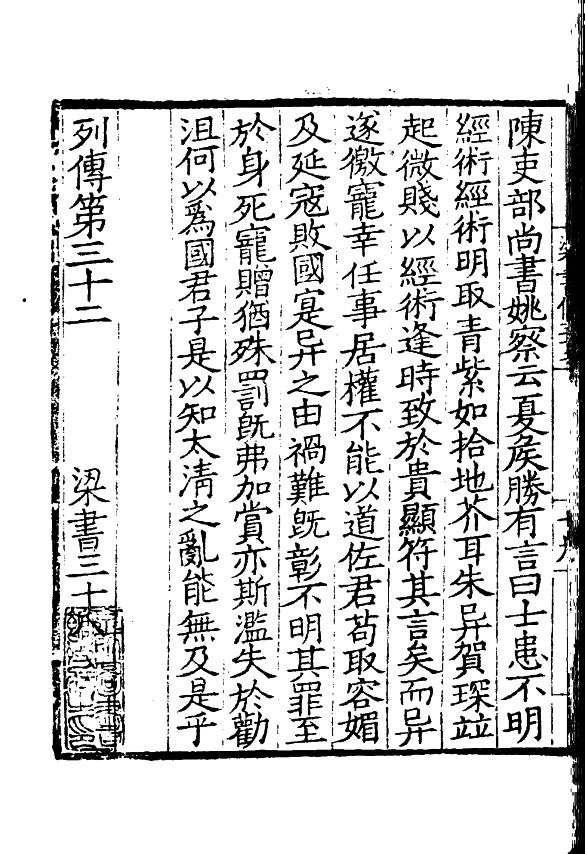 陳吏部尚書姚察云夏侯勝有言曰士患不明
經術經術明取青紫如拾地芥耳朱异賀琛竝
起微賤以經術逢時致於貴顯符其言矣而异
遂徼寵幸任事居權不能以道佐君苟取容媚
及延寇敗國寔异之由禍難旣彰不明其罪至
於身死寵贈猶殊罰旣弗加賞亦斯濫失於勸
沮何以爲國君子是以知太清之亂能無及是乎
列傳第三十二 梁書三十